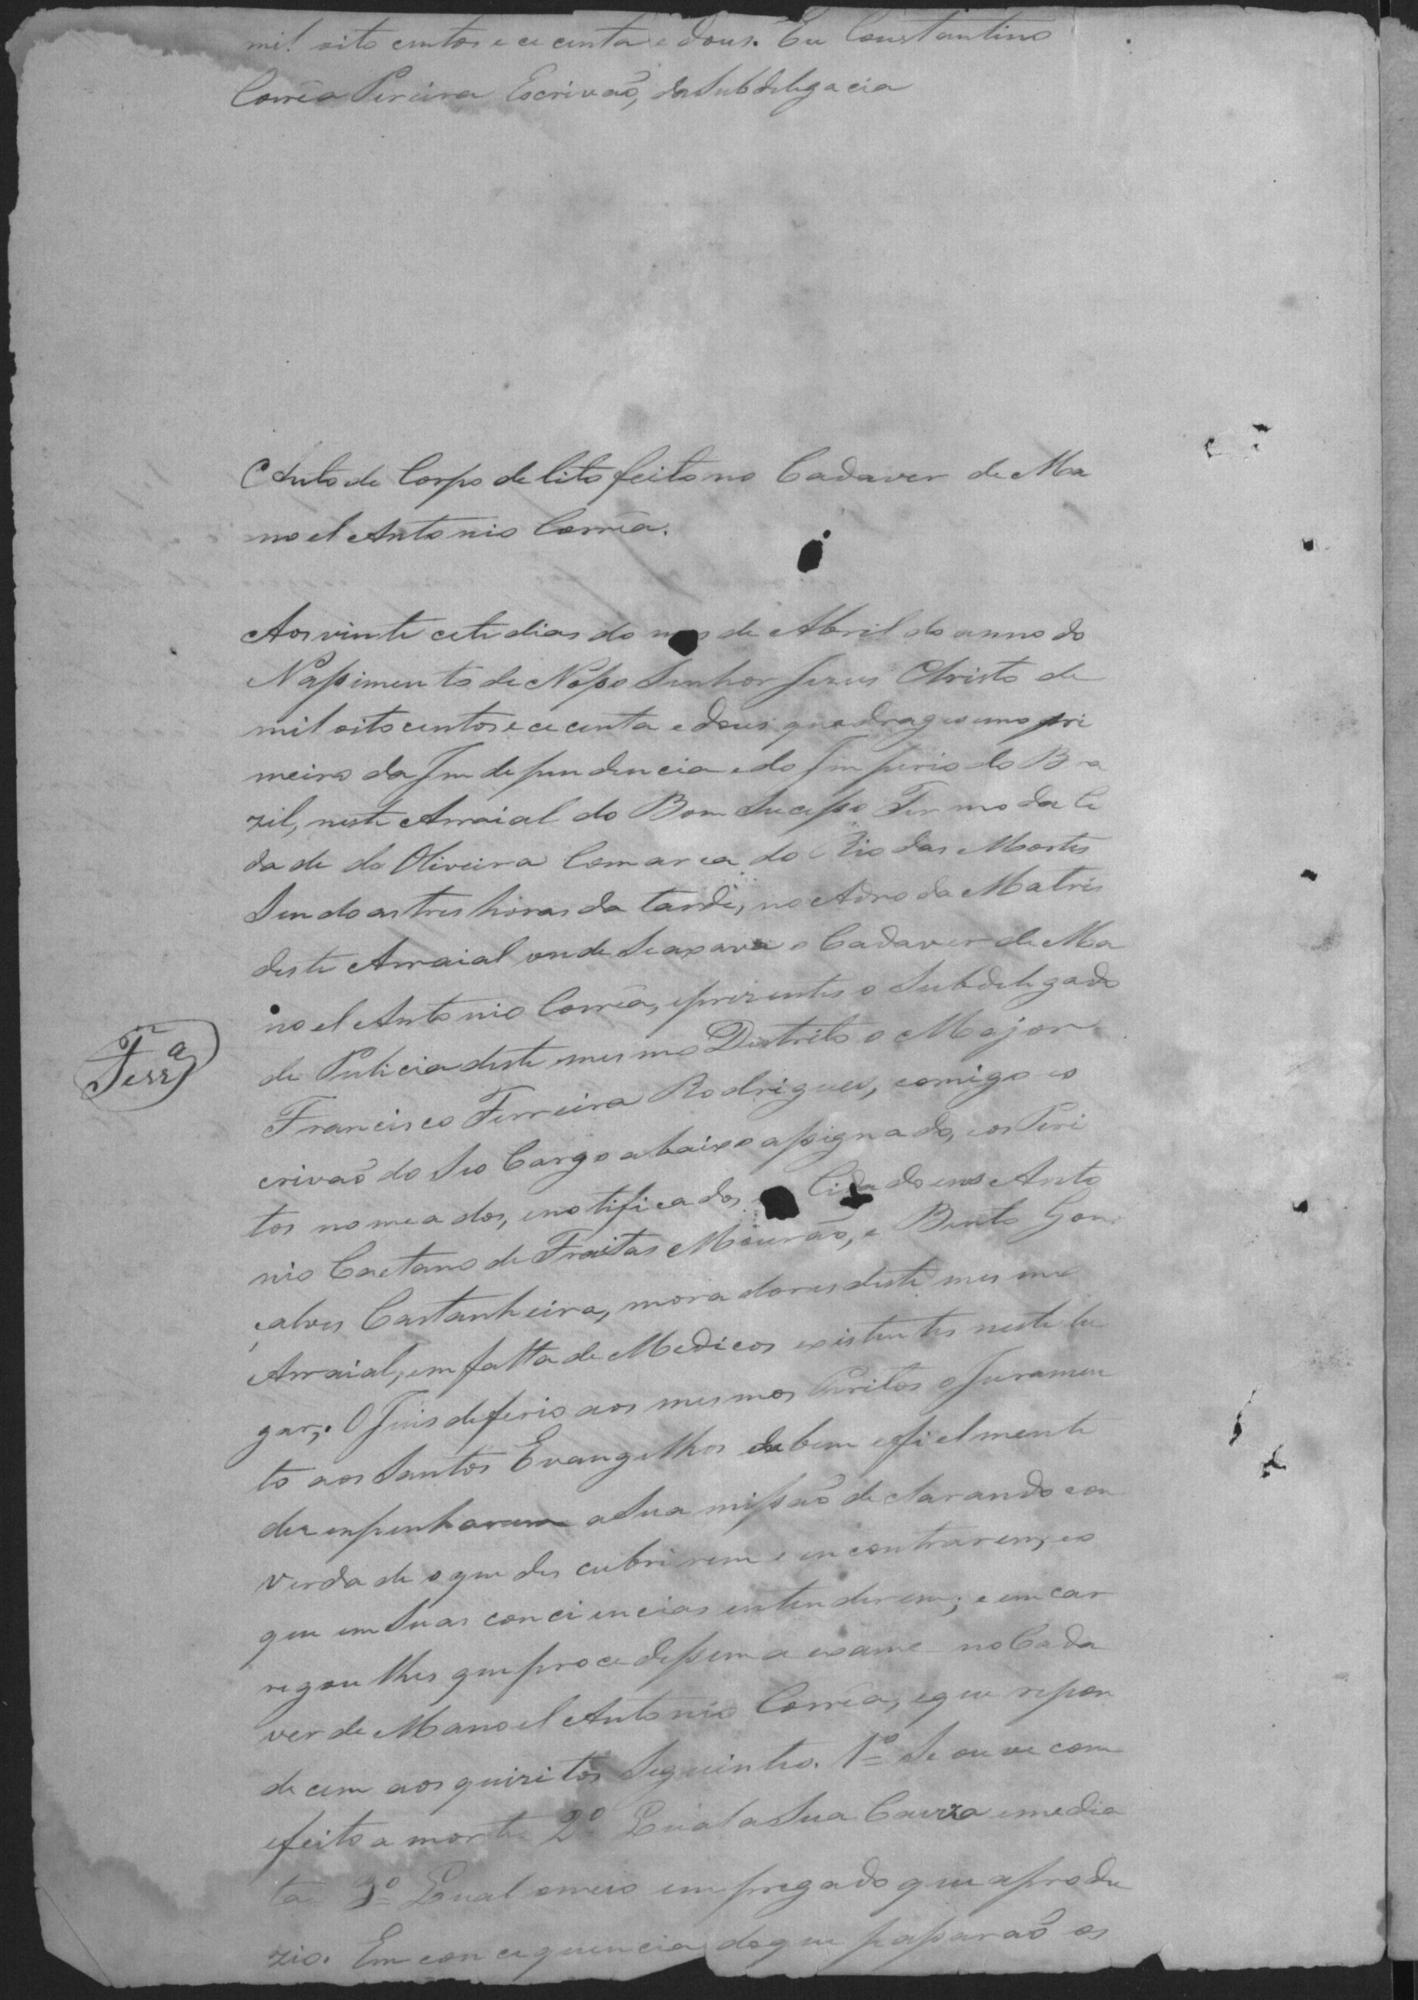 mil oito centos e cecenta e dous. Eu Constantino
Corrêa Pereira Escrivaõ, da Subdelegacia
Auto de Corpo delito feito no Cadaver de Ma
noel Antonio Corrêa.
Aos vinte cete dias do mes de Abril do anno do
Nassimento de Nosso Senhor Jezus Christo de
mil oito centos e cecenta e dous quadragesimo pri
meiro da Independencia e do Imperio do Bra
zil, neste Arraial do Bom Sucesso Termo da Ci
dade de Oliveira Comarca do Rio das Mortes
Sendo as tres horas da tarde, no Adro da Matris
deste Arraial onde Se axava o Cadaver de Ma
noel Antonio Corrêa, eprezentes o Subdelegado
de Pulicia deste mesmo Distrito o Major
Ferrª
Francisco Ferreira Rodrigues, comigo es
crivaõ do Seo Cargo abaixo assignado, eos Peri
tos nomeados, enotificados os Cidadoens Anto
nio Caetano de Fraitas Mouraõ, e Bento Gon
çalves Castanheira, moradores deste mesmo
Arraial, em falta de Medicos existentes neste lu
gar; O Juis deferio aos mesmos Peritos o Juramen
to aos Santos Evangelhos de bem efielmente
dezenpenharem a Sua missaõ declarando com
verdade oque descubrirem e encontrarem, eo
que em Suas conciencias entenderem; e emcar
regou lhes que procedessem a exame no Cada
ver de Manoel Antonio Corrêa, eque respon
decem aos quizitos Seguintes. 1º Se ouve com
efeito a morte 2º Qual a Sua Cauza emedia
ta 3º Qual omeio empregado que aprodu
zio. Em concequencia doque passaraõ os